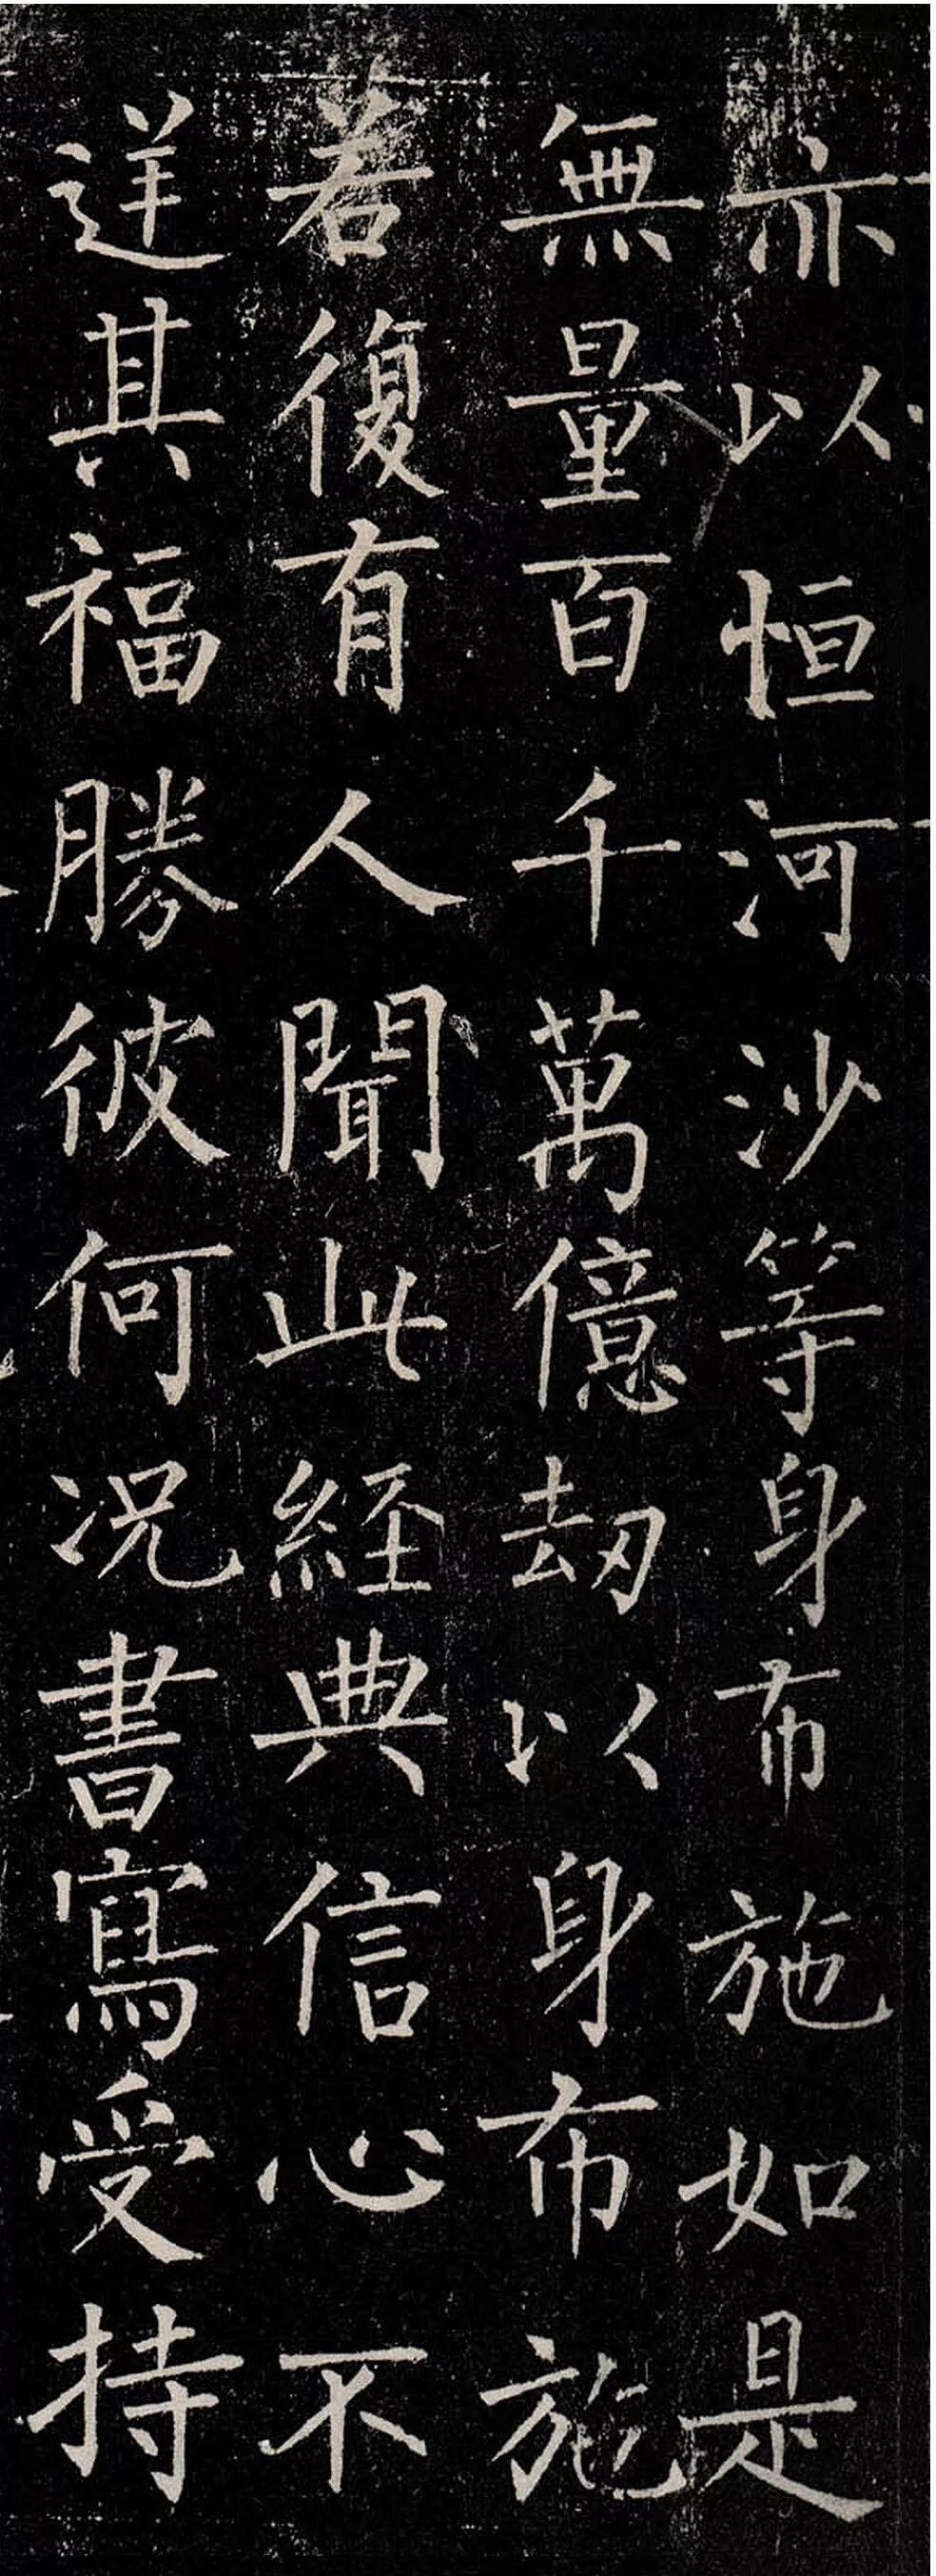 亦以恒河沙等身布施如是
無量百千萬億劫以身布施
若復有人聞此経典信心不
逆其福勝彼何况書寫受持